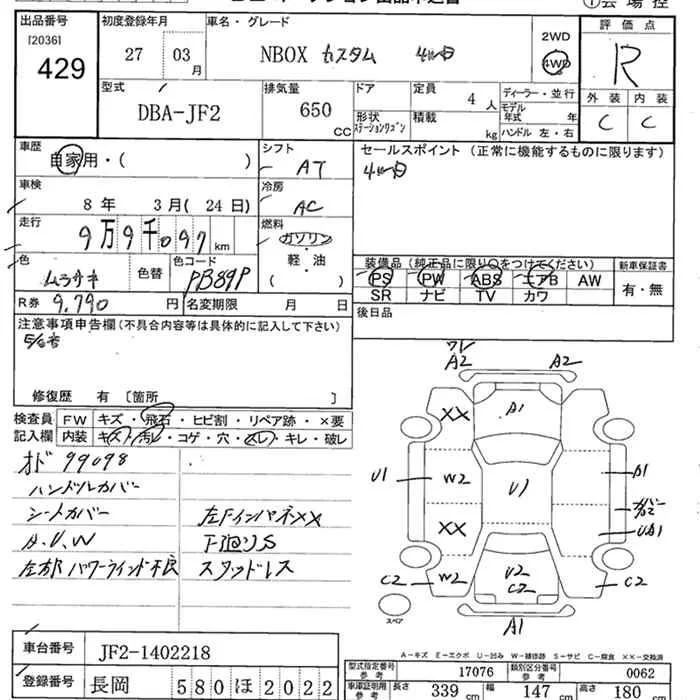 出品番号
[2036]
429
初度登録年月
27 03 月
車名・グレード
NBOX カスタム 4WD
2WD
4WD
評価点
R
外装 内装
C C
型式
DBA-JF2
排気量
650 CC
ドア
形状
ステーションワゴン
定員
4 人
積載
kg
ディーラー・並行
モデル年式 年
ハンドル 左・右
車歴
自家用・( )
シフト
AT
セールスポイント (正常に機能するものに限ります)
車検
8 年 3 月 ( 24 日)
冷房
AC
走行
9万9千097 km
燃料
ガソリン
軽・油
( )
色
ムラサキ
色替
色コード
PB89P
装備品 (純正品に限り○をつけてください)
PS PW ABS エアB AW
SR ナビ TV カワ
新車保証書
有・無
R券 9,790 円
名変期限 月 日
後日品
注意事項申告欄 (不具合内容等は具体的に記入して下さい)
修復歴 有 [箇所 ]
検査員 FW キズ・飛石・ヒビ割・リペア跡・×要
記入欄 内装 キズ・汚レ・コゲ・穴・スレ・キレ・破レ
オド 99098
ハンドルカバー
シートカバー
A.U.W
左右ドパワーウインド不良
左Fインパネ××
下廻りS
スタッドレス
ワレ
A2 A2
XX A1
U1 W2 U1 A1
A2
XX UA1
C2 W2 U2 C2 C2
スペア
A1
A-キズ E-エクボ U-凹み W-補修跡 S-サビ C-腐食 XX-交換済
車台番号
JF2-1402218
登録番号
長岡 580 ほ 2022
型式指定番号
参考
17076
類別区分番号
参考
0062
車庫証明用
参考
長さ 339 cm
幅 147 cm
高さ 180 cm